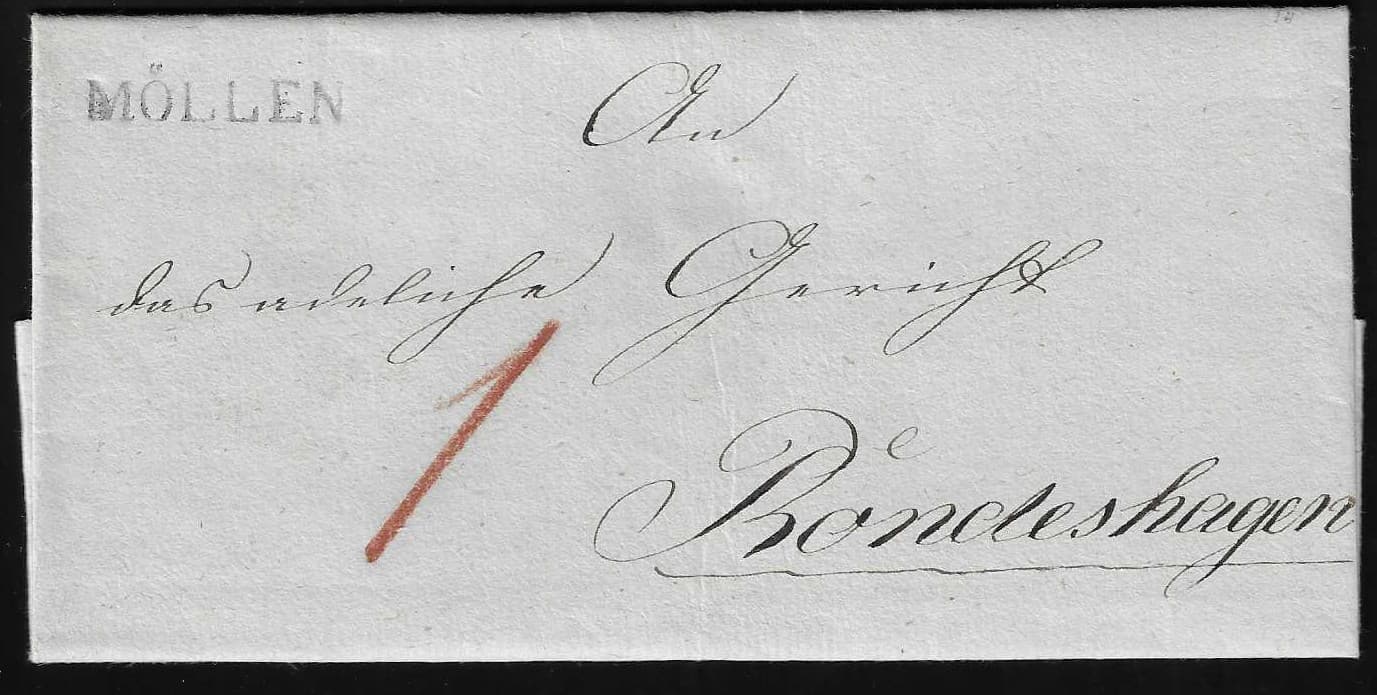 MÖLLEN
An
das adeliche Gericht
1
Röndeshagen